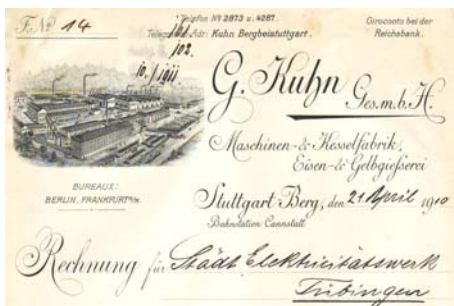 F. Nº 14
Telefon Nº 2873 u. 4287.
Telegramm-Adr: Kuhn Bergbeistuttgart.
Giroconto bei der
Reichsbank.
102.
10./ 1911
G. Kuhn Ges.m.b.H.
Maschinen- & Kesselfabrik,
Eisen- & Gelbgießerei
BUREAUX:
BERLIN, FRANKFURT a/M.
Stuttgart-Berg, den 21 April 1910
Bahnstation Cannstatt
Rechnung für Städt Elektricitätswerk
Tübingen